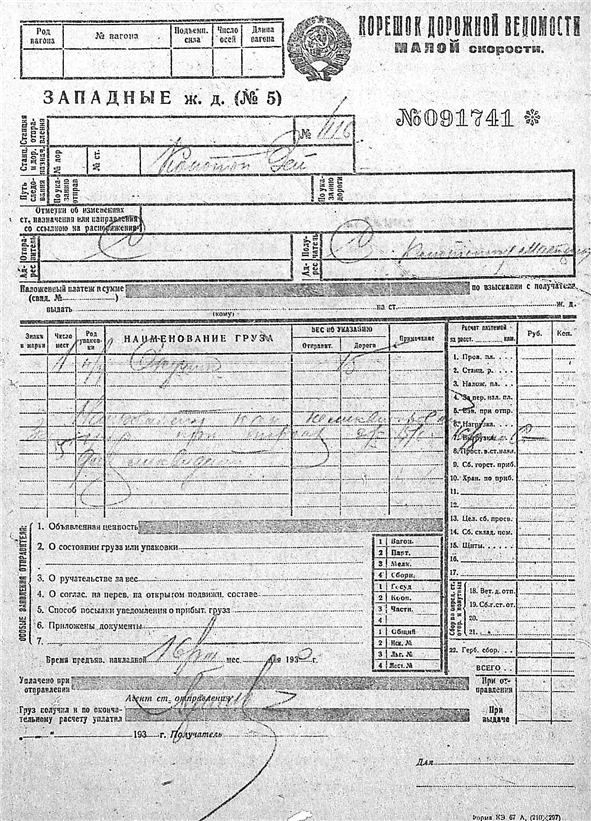 КОРЕШОК ДОРОЖНОЙ ВЕДОМОСТИ
МАЛОЙ скорости.
Род вагона
№ вагона
Подъемн. сила
Число осей
Длина вагона
ЗАПАДНЫЕ ж. д. (№ 5)
№091741
Станция отправления
№ 1116
Станц. и дор. назнач.
№ дор
№ ст.
Путь следования
По указанию отправ
По указанию дороги
Отметки об изменениях
ст. назначения или направления
со ссылкою на распоряжения
Адрес отправитель
Адрес получатель
Наложенный платеж в сумме
по взыскании с получателя.
(свид. №)
выдать
(кому)
на ст.
ж. д.
Знаки и марки
Число мест
Род упаковки
НАИМЕНОВАНИЕ ГРУЗА
ВЕС ПО УКАЗАНИЮ
Отправит.
Дороги
Примечание
Расчет платежей
за расст. клм.
Руб.
Коп.
1. Пров. пл.
2. Станц. р.
3. Налож. пл.
4. За пер. нал. пл.
5. Взи. при отпр.
6. Нагрузка.
7. Выгрузка
8. Прост. в ст. накл.
9. Сб. горет. приб.
10. Хран. по приб.
11.
12.
13. Цел. сб. просв.
14. Сб. склад. пом.
15. Щиты.
16.
17.
Сбор на перед. ст. отпр. и попутных
18. Вет. д. отп.
19. Сб. г. ст. от.
20.
21.
22. Герб. сбор.
ВСЕГО
ОСОБЫЕ ЗАЯВЛЕНИЯ ОТПРАВИТЕЛЯ:
1. Объявленная ценность
2. О состоянии груза или упаковки
3. О ручательстве за вес
4. О соглас. на перев. на открытом подвижн. составе
5. Способ посылки уведомления о прибыт. груза
6. Приложены документы
7.
1 Вагон.
2 Парт.
3 Мелк.
4 Сборн.
1 Госуд
2 Кооп.
3 Частн.
4
1 Общий
2 Иск. №
3 Льг. №
4 Мест. №
Время предъяв. накладной 16 мес. дня 1930 г.
Уплачено при отправлении
При отправлении
Агент ст. отправления
Груз получил и по окончательному расчету уплатил
При выдаче
193 г. Получатель
Для
Форма КЭ 67 А, (210)×(297)